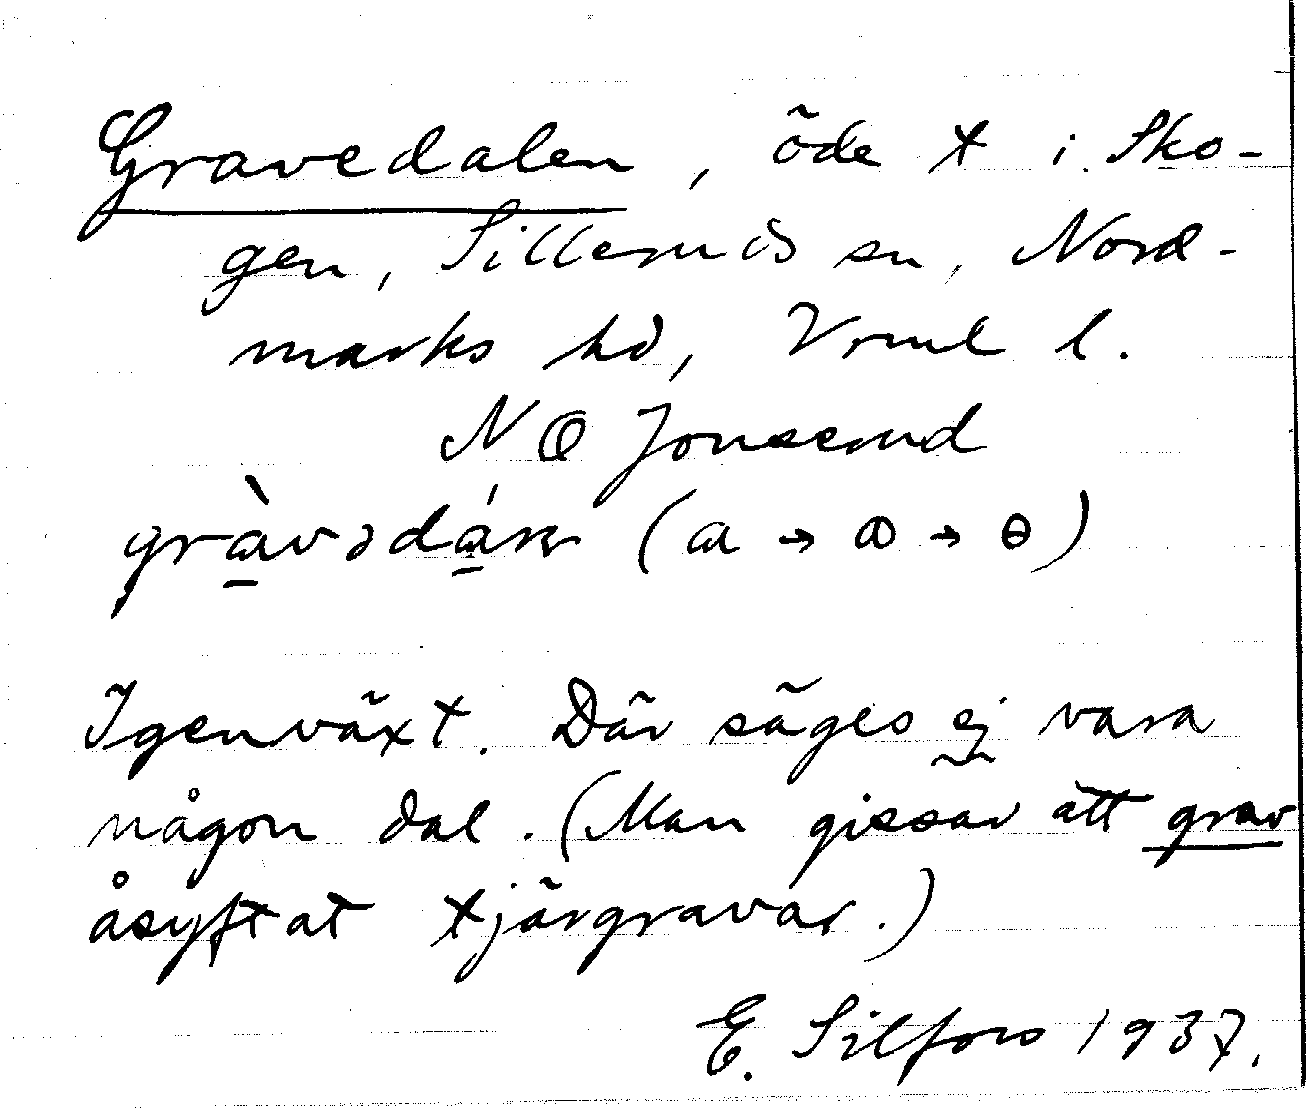 Gravedalen, öde t i Sko-
gen, Sillerud sn, Nord-
marks hd, Vrml l.
NO Jonserud
Igenväxt. Där säges ej vara
någon dal. (Man gissar att grav
åsyftat tjärgravar.)
E. Silfors 1937.